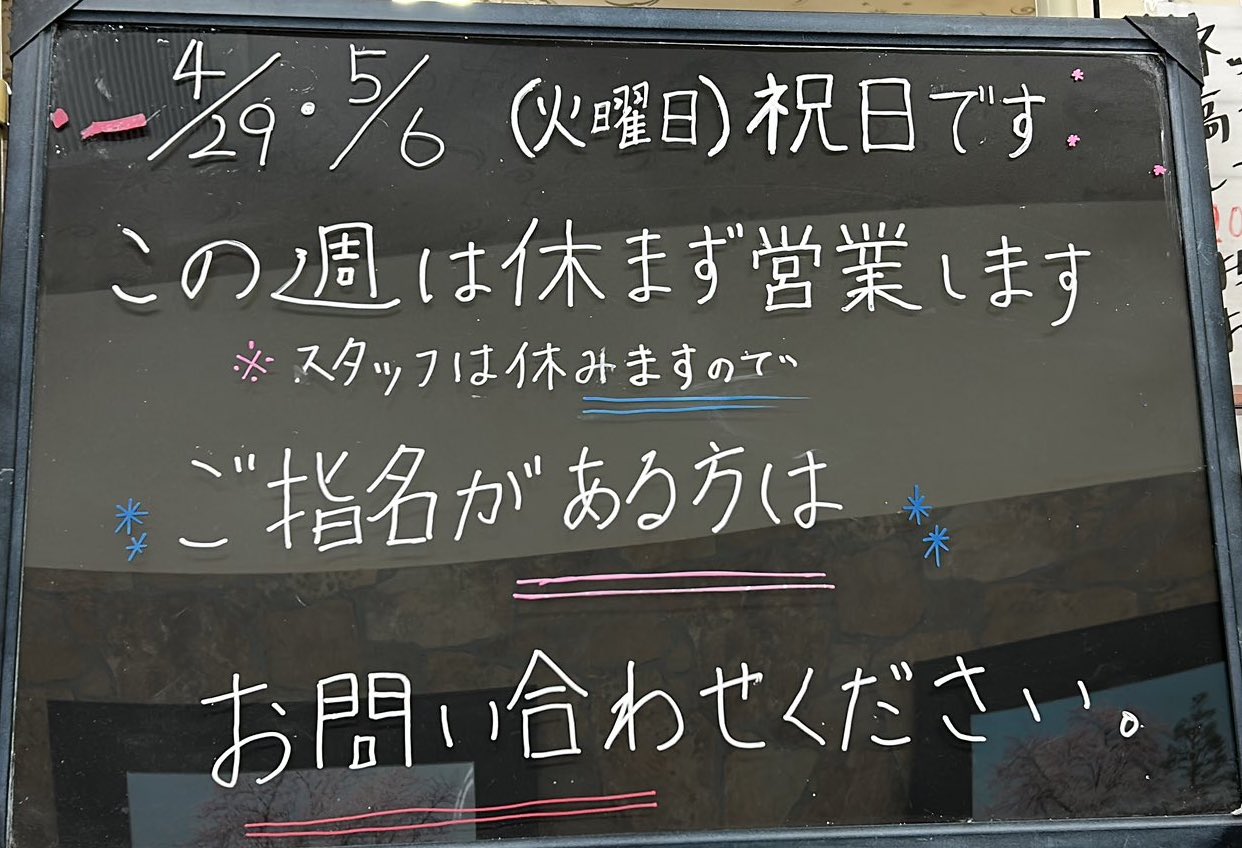 4/29・5/6 (火曜日)祝日です
この週は休まず営業します
※スタッフは休みますので
ご指名がある方は
お問い合わせください。